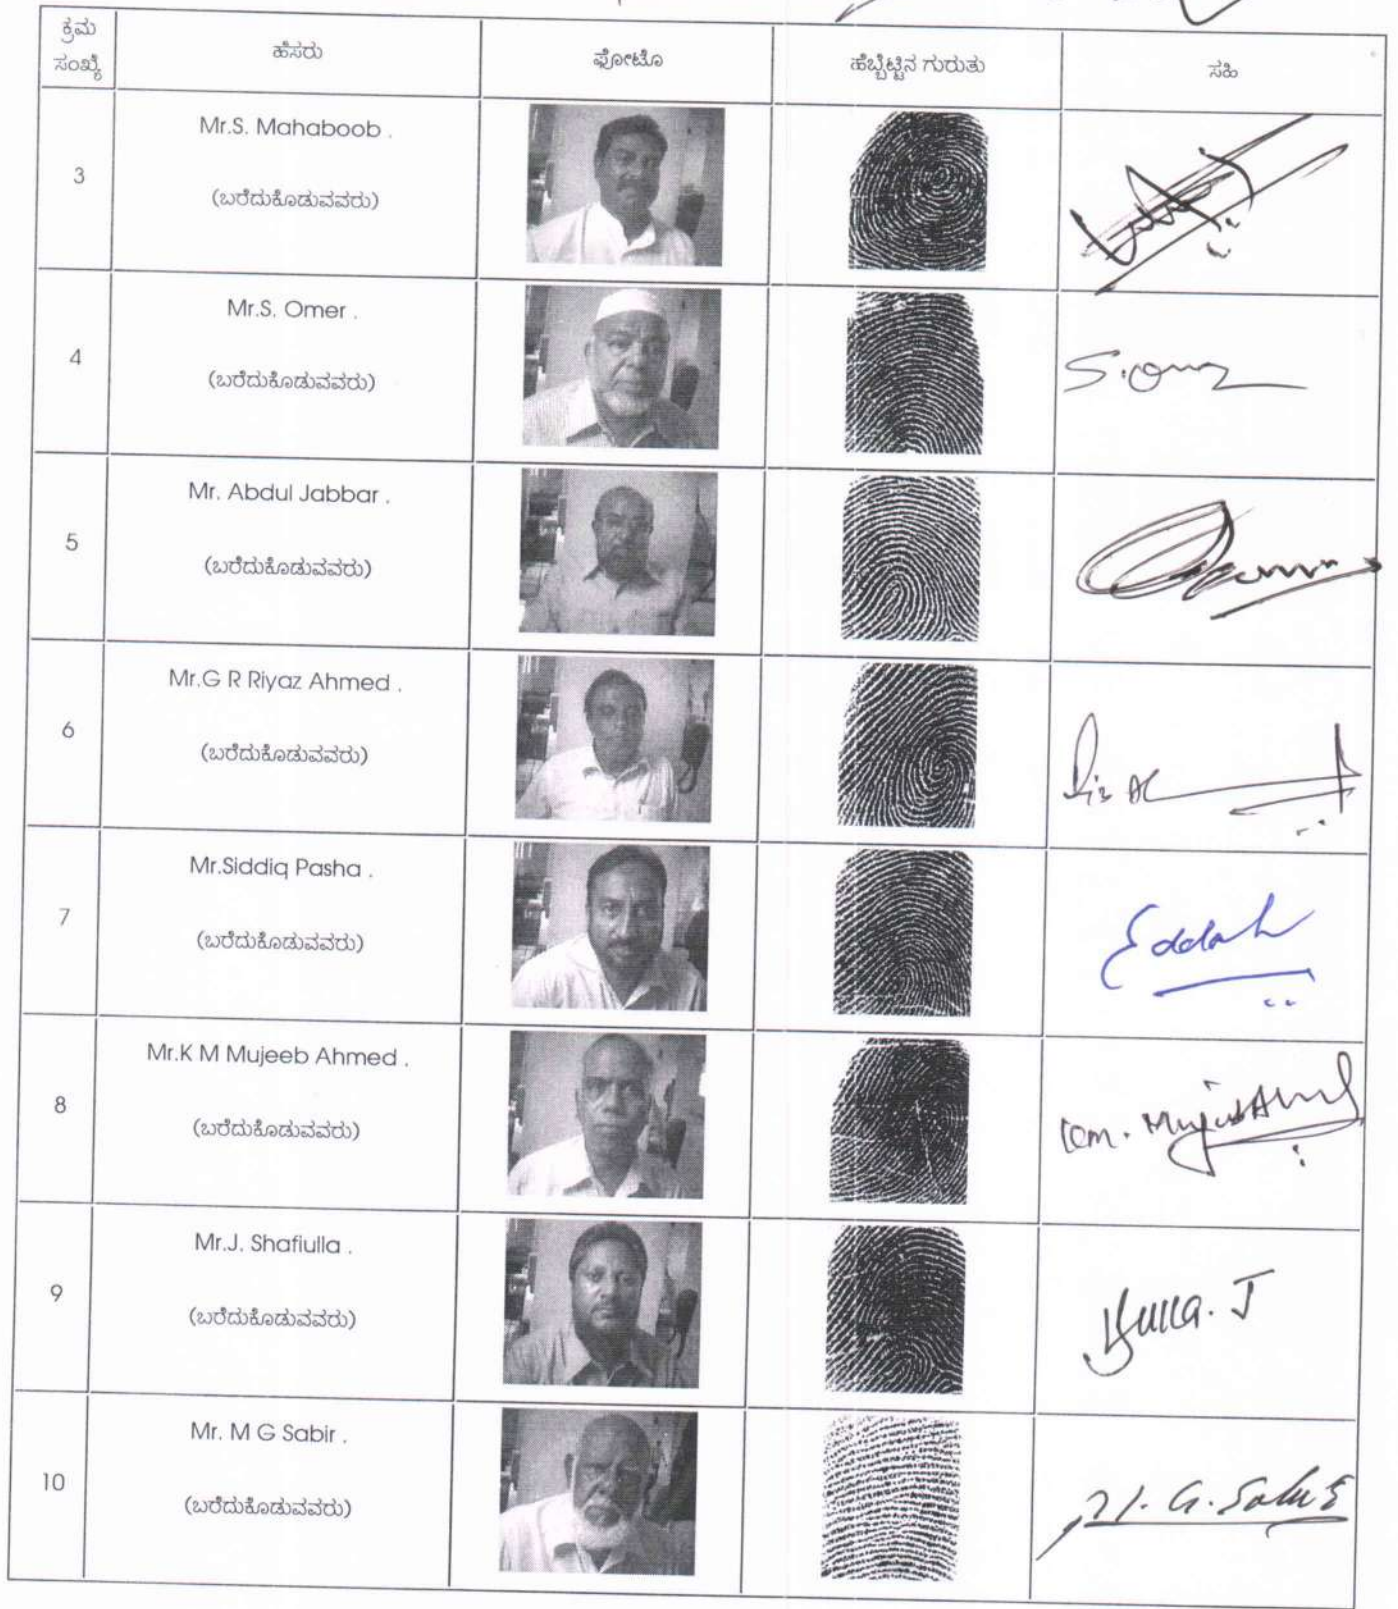 ಕ್ರಮ
ಸಂಖ್ಯೆ
ಹೆಸರು
ಫೋಟೊ
ಹೆಬ್ಬೆಟ್ಟಿನ ಗುರುತು
ಸಹಿ
3
Mr.S. Mahaboob .
(ಬರೆದುಕೊಡುವವರು)
4
Mr.S. Omer .
(ಬರೆದುಕೊಡುವವರು)
5
Mr. Abdul Jabbar .
(ಬರೆದುಕೊಡುವವರು)
6
Mr.G R Riyaz Ahmed .
(ಬರೆದುಕೊಡುವವರು)
7
Mr.Siddiq Pasha .
(ಬರೆದುಕೊಡುವವರು)
8
Mr.K M Mujeeb Ahmed .
(ಬರೆದುಕೊಡುವವರು)
9
Mr.J. Shafiulla .
(ಬರೆದುಕೊಡುವವರು)
10
Mr. M G Sabir .
(ಬರೆದುಕೊಡುವವರು)